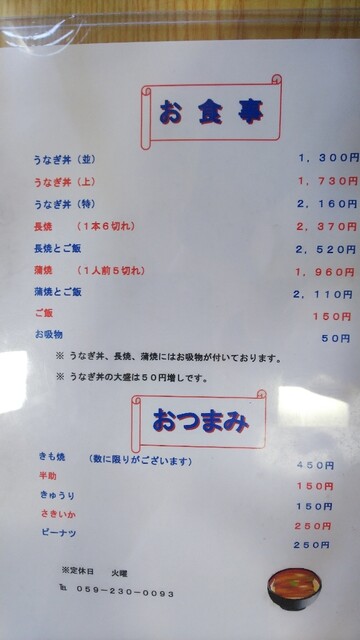 お食事
うなぎ丼（並） １，３００円
うなぎ丼（上） １，７３０円
うなぎ丼（特） ２，１６０円
長焼 （１本６切れ） ２，３７０円
長焼とご飯 ２，５２０円
蒲焼 （１人前５切れ） １，９６０円
蒲焼とご飯 ２，１１０円
ご飯 １５０円
お吸物 ５０円
※ うなぎ丼、長焼、蒲焼にはお吸物が付いております。
※ うなぎ丼の大盛は５０円増しです。
おつまみ
きも焼 （数に限りがございます） ４５０円
半助 １５０円
きゅうり １５０円
さきいか ２５０円
ピーナツ ２５０円
※定休日 火曜
℡ ０５９－２３０－００９３